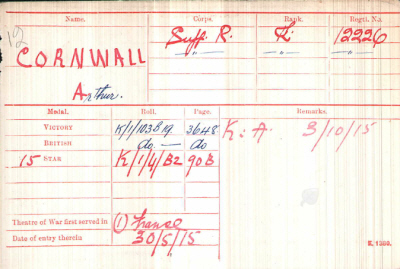 Name. Corps. Rank. Regtl. No.
CORNWALL Suff. R. 12226
" "
Arthur.
Medal. Roll. Page. Remarks.
VICTORY K/1/103B19 3648 K. i. A. 3/10/15
BRITISH do — do
15 STAR K/1/4/B2 90B
Theatre of War first served in (1) France
Date of entry therein 30/5/15
K. 1380.